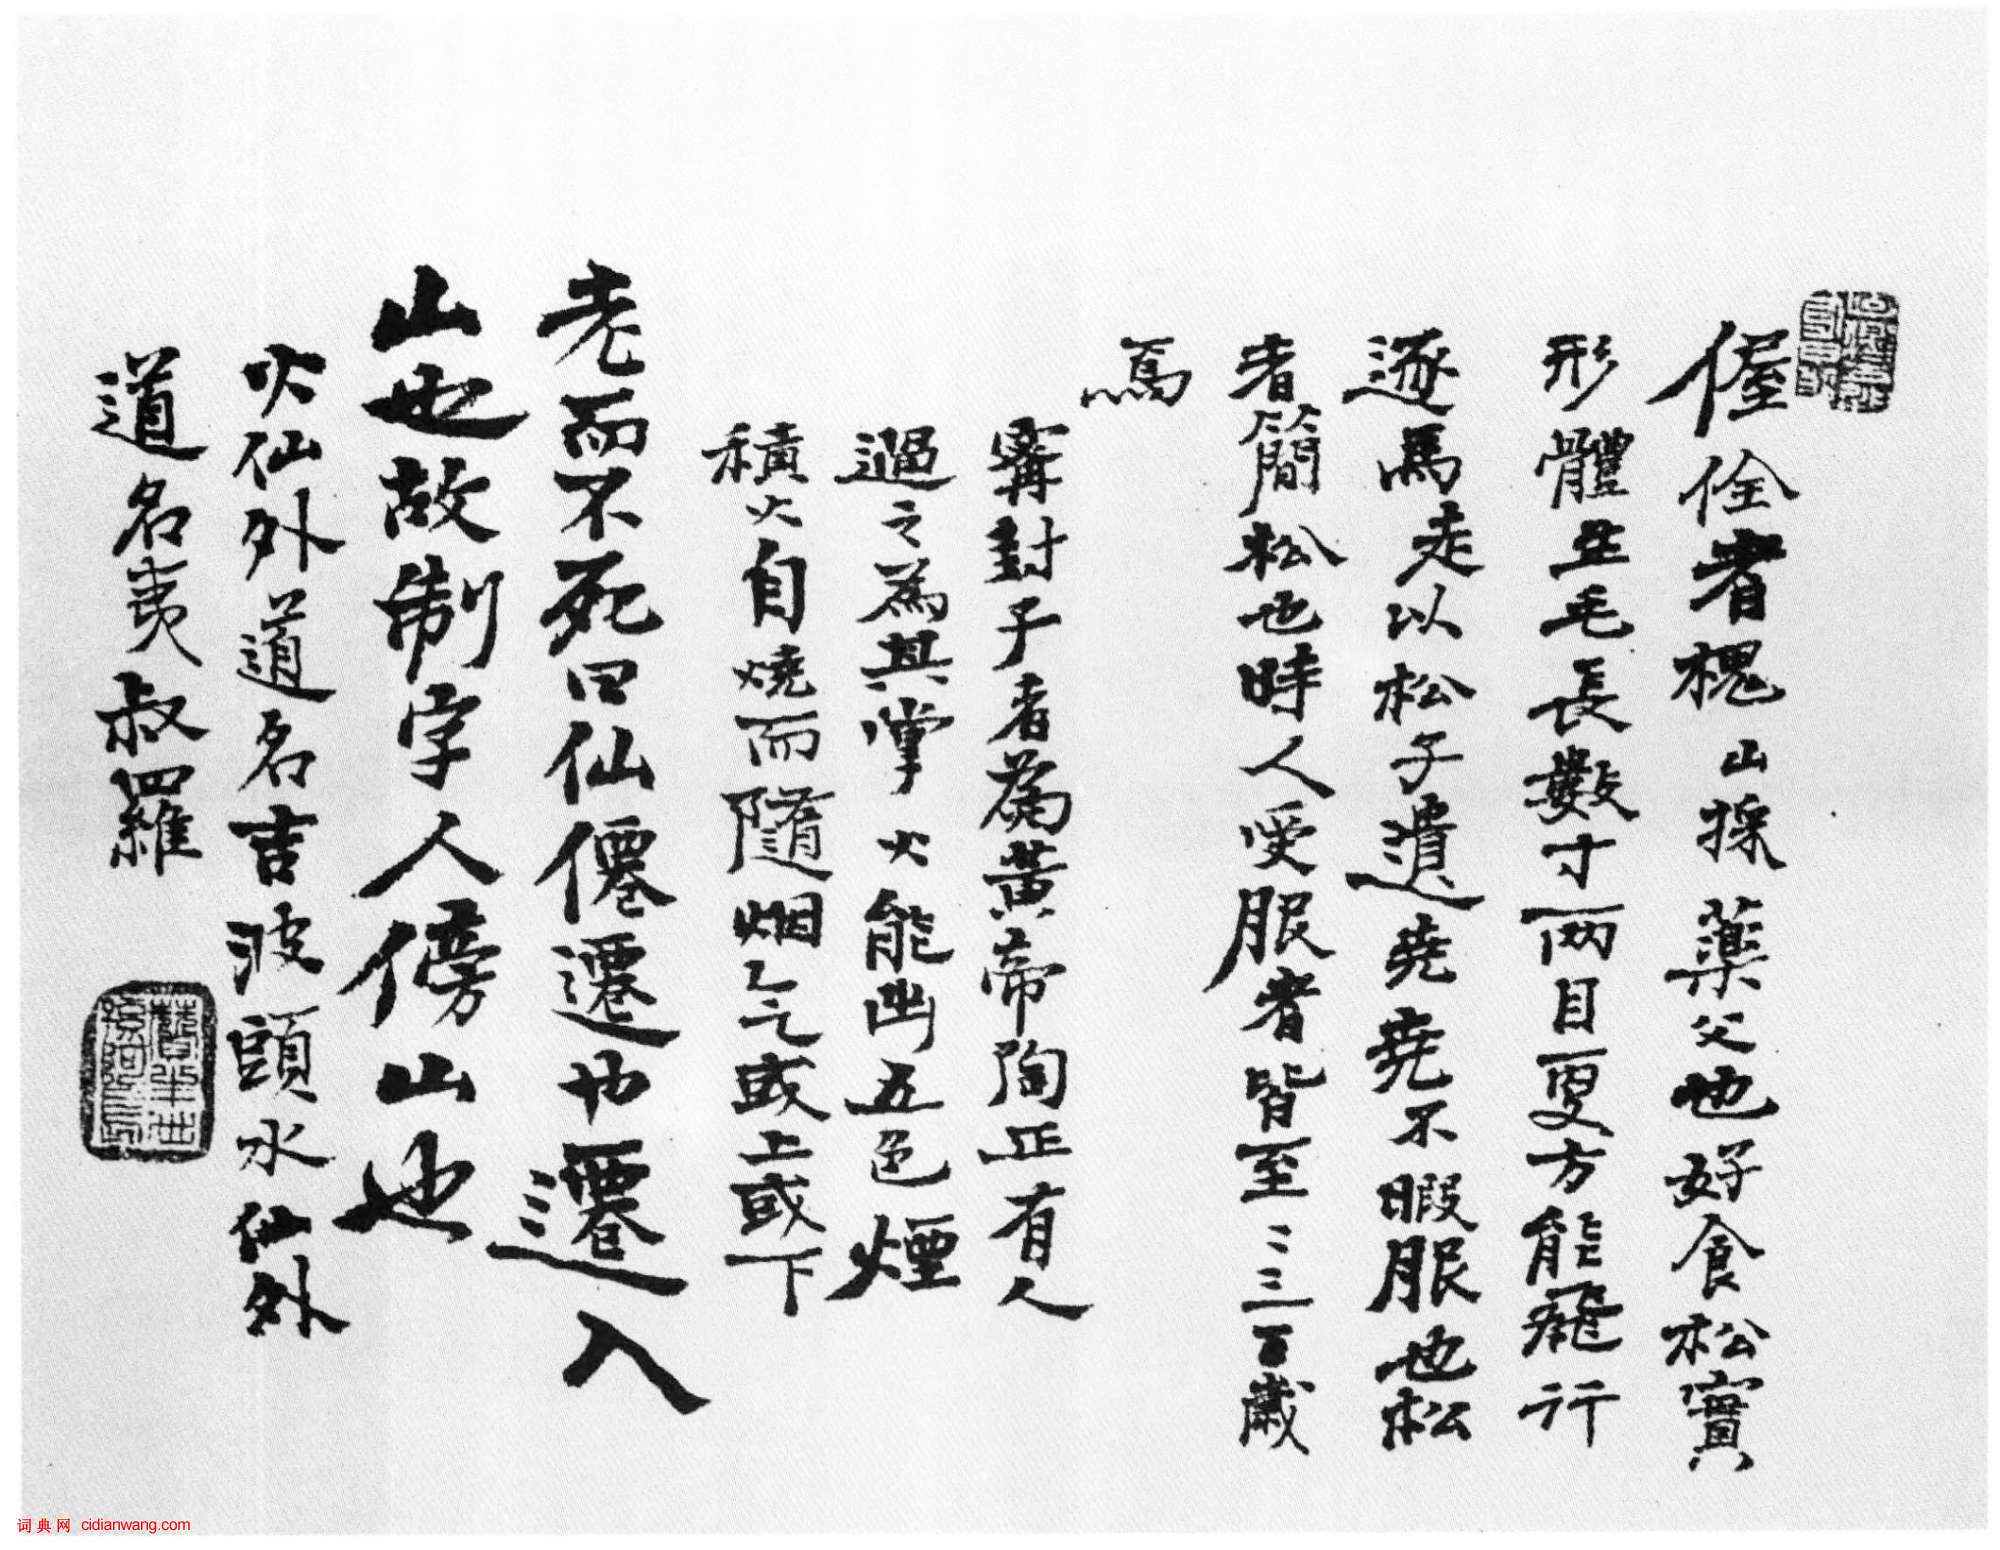 偓佺者槐山採藥父也好食松實
形體生毛長數寸兩目更方能飛行
逐馬走以松子遺堯堯不暇服也松
者簡松也時人受服者皆至二三百歲
焉
甯封子者為黃帝陶正有人
過之為其掌火能出五色煙
積火自燒而隨烟气或上或下
老而不死曰仙僊遷也遷入
山也故制字人傍山也
火仙外道名吉波頭水仙外
道名夷叔羅
词典网 cidianwang.com